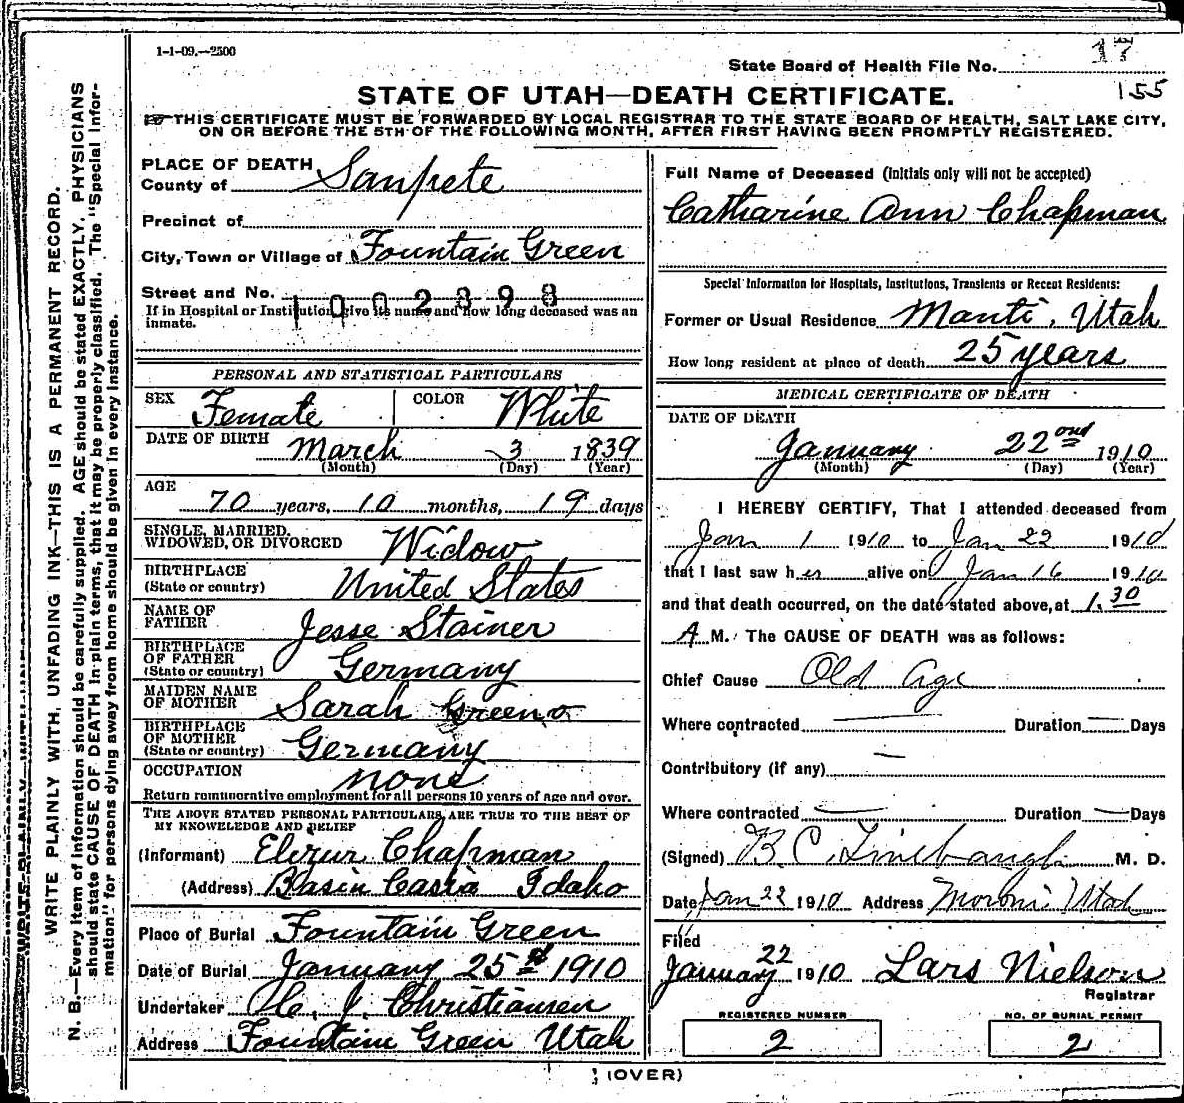 1-1-09.—2500
State Board of Health File No. 17
155
STATE OF UTAH—DEATH CERTIFICATE.
THIS CERTIFICATE MUST BE FORWARDED BY LOCAL REGISTRAR TO THE STATE BOARD OF HEALTH, SALT LAKE CITY,
ON OR BEFORE THE 5TH OF THE FOLLOWING MONTH, AFTER FIRST HAVING BEEN PROMPTLY REGISTERED.
WRITE PLAINLY WITH UNFADING INK—THIS IS A PERMANENT RECORD.
N. B.—Every item of information should be carefully supplied. AGE should be stated EXACTLY, PHYSICIANS
should state CAUSE OF DEATH in plain terms, that it may be properly classified. The "Special Infor-
mation" for persons dying away from home should be given in every instance.
PLACE OF DEATH
County of Sanpete
Precinct of
City, Town or Village of Fountain Green
Street and No.
1002898
If in Hospital or Institution give its name and how long deceased was an
inmate.
PERSONAL AND STATISTICAL PARTICULARS
SEX Female COLOR White
DATE OF BIRTH March 3 1839
(Month) (Day) (Year)
AGE
70 years, 10 months, 19 days
SINGLE, MARRIED,
WIDOWED, OR DIVORCED Widow
BIRTHPLACE
(State or country) United States
NAME OF
FATHER Jesse Stainer
BIRTHPLACE
OF FATHER
(State or country) Germany
MAIDEN NAME
OF MOTHER Sarah
BIRTHPLACE
OF MOTHER
(State or country) Germany
OCCUPATION none
Return remunerative employment for all persons 10 years of age and over.
THE ABOVE STATED PERSONAL PARTICULARS ARE TRUE TO THE BEST OF
MY KNOWLEDGE AND BELIEF
(Informant) Chapman
(Address) Basin Casia Idaho
Place of Burial Fountain Green
Date of Burial January 25 1910
Undertaker J. Christiansen
Address Fountain Green Utah
Full Name of Deceased (Initials only will not be accepted)
Catharine Ann Chapman
Special Information for Hospitals, Institutions, Transients or Recent Residents:
Former or Usual Residence Manti, Utah
How long resident at place of death 25 years
MEDICAL CERTIFICATE OF DEATH
DATE OF DEATH
January 22ond 1910
(Month) (Day) (Year)
I HEREBY CERTIFY, That I attended deceased from
Jan 1 1910 to Jan 22 1910
that I last saw her alive on Jan 16 1910
and that death occurred, on the date stated above, at 1.30
A M. The CAUSE OF DEATH was as follows:
Chief Cause Old age
Where contracted — Duration — Days
Contributory (if any) —
Where contracted — Duration — Days
(Signed) B. C. Linebaugh M. D.
Date Jan 22 1910 Address Moroni Utah
Filed
January 22 1910 Lars Nielson
Registrar
REGISTERED NUMBER
2
NO. OF BURIAL PERMIT
2
(OVER)